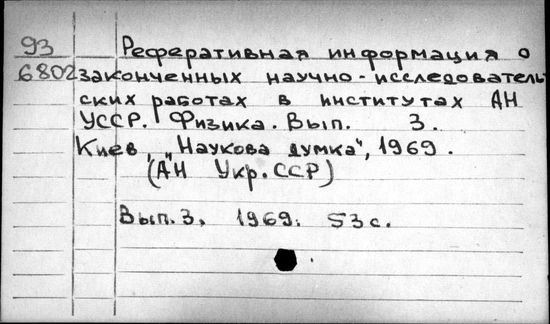 93 Реферативная информация о
6802 законченных научно-исследователь
ских работах в институтах АН
УССР. Физика. Вып. 3.
Киев, "Наукова думка", 1969.
(АН Укр.ССР)
Вып.3. 1969. 53 с.